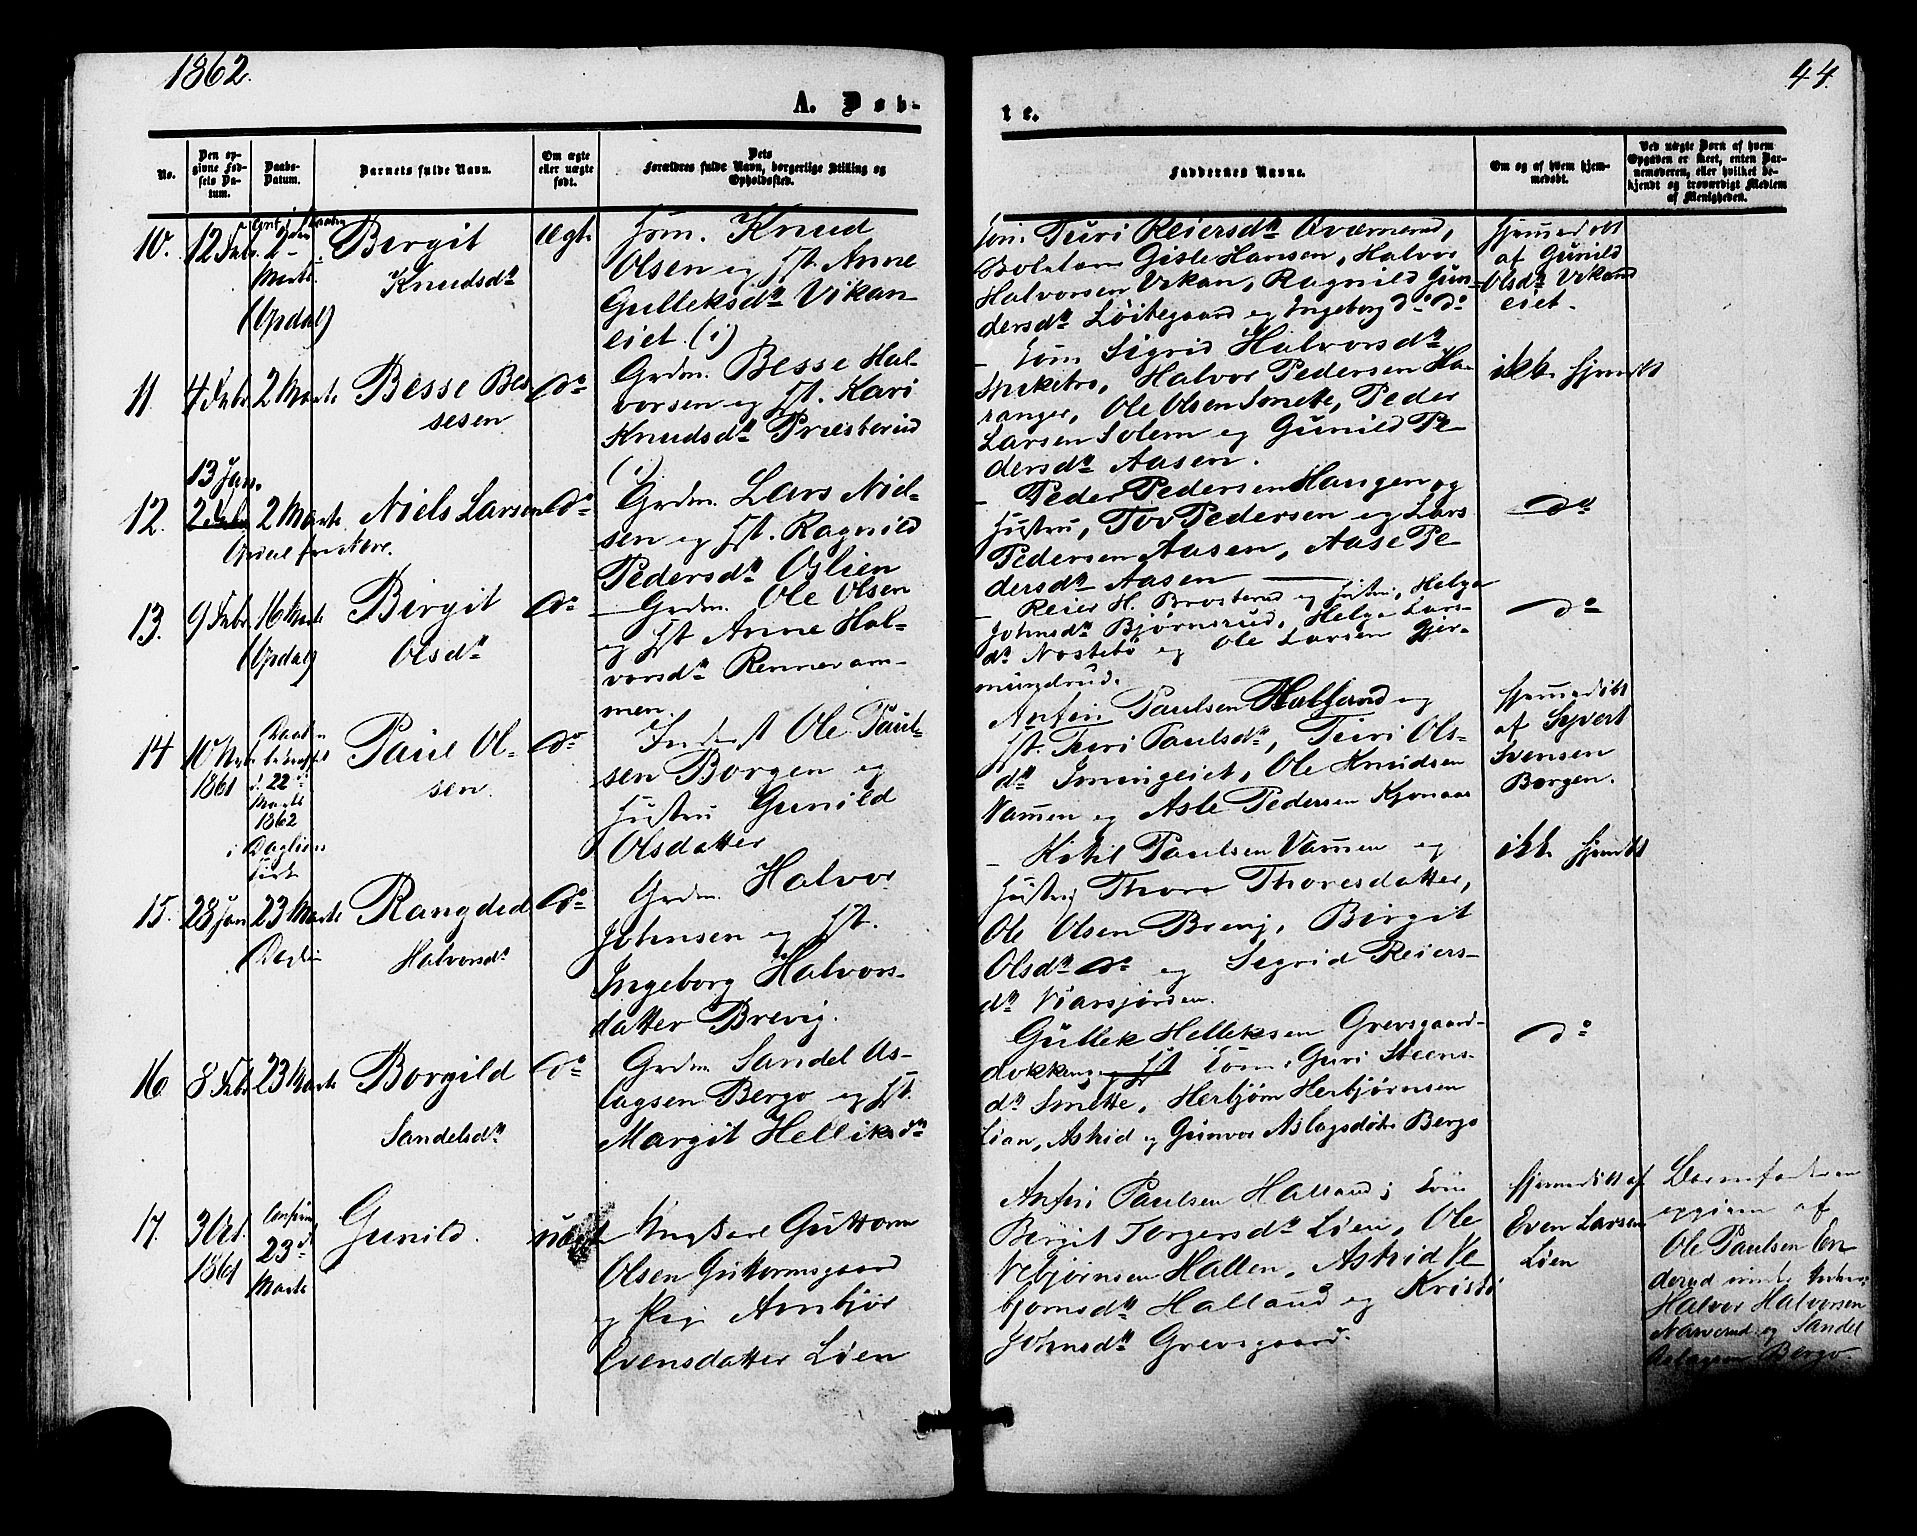 1862.
44.
A. Døb-
te.
No.
Den op-
givne Fød-
sels Da-
tum.
Daabs-
Datum.
Barnets fulde Navn.
Om ægte
eller uægte
født.
Dets
Forældres fulde Navn, borgerlige Stilling og
Opholdssted.
Faddernes Navne.
Om og af hvem hjem-
medøbt.
Ved uægte Børn af hvem
Opgaven er skeet, enten Bar-
nemoderen, eller hvilket be-
kjendt og troværdigt Medlem
af Menigheden.
10. 12 Febr. 2den
Marts.
(Opdal)
Birgit
Knudsdn
Ægt.
Knud
Olsen og Hst. Anne
Gulleksdn Vikan
eiet. (i)
Turi Reiersdn
Gisle Hansen, Halvor
Halvorsen Vikan, Ragnild Gun-
dersdn Løitegaard og Ingeborg do do
hjemmedøbt
af Gunild
Olsdn Vikan
eiet.
11. 4 Febr. 2 Marts
Besse Bes
sesen
do
Grdm. Besse Hal-
vorsen og Hst. Kari
Knudsdn Præsterud
(i)
Sigrid Halvorsdn
Halvor Pedersen Ha-
ranger, Ole Olsen Smette, Peder
Larsen Solem og Gunild Pe-
dersdn Aasen.
ikke hjemdt
12. 13 Jan.
2 Febr 2 Marts
Niels Larsen
do
Grdm. Lars Niel-
sen og Hst. Ragnild
Pedersdn Oslien
Peder Pedersen Haugen og
Hustru, Tov Pedersen og Lars
Pedersen Aasen, Aase Pe-
dersdn Aasen
do
13. 9 Febr 16 Marts
(Opdal)
Birgit
Olsdn
do
Grdm. Ole Olsen
og Hst Anne Hal-
vorsdn Renneram-
men.
Reier H. Brosterud og Hustru, Helga
Johnsdn Bjørnsrud, Helga Lars-
dn Nostebø og Ole Larsen Gjer-
mundrud.
do
14 10
1861
22
Marts
1862
i Daglien
Paul Ol-
sen.
do
Inderst Ole Paul-
sen Borgen og
Hustru Gunild
Olsdatter
Anfin Paulsen Halland og
Hst. Turi Paulsdn, Turi Ols-
dn Ole Knudsen
Vammen og Asle Pedersen Kjonaas
hjemmedøbt
af Syvert
Svensen
Borgen.
15. 28 Jan 23 Marts
Rangdid
Halvorsdn
do
Grdm. Halvor
Johnsen og Hst.
Ingeborg Halvors-
datter Brevig.
Kittil Paulsen Vammen og
Hustru Thore Thoresdatter,
Ole Olsen Brevig, Birgit
Olsdn do og Sigrid Reiers-
dn
ikke hjemdt
16 8 Febr 23 Marts
Borgild
Sandelsdn
do
Grdm Sandel As-
lagsen Bergo og Hst.
Margit Helliksdn
Gullek Helleksen Grevsgaard-
dokken og Hst Guri Steens-
dn Smette, Herbjørn Herbjørnsen
Lian, Astrid og Gunvor Aslagsdøtre Bergo
do
17. 3 Oct.
1861
23de
Marts
Gunild.
uægt
Ungkarl Guttorm
Olsen Guttormsgaard
og Pige Arnbjør
Evensdatter Lien
Anfin Paulsen Halland,
Birgit Torgersdn Lien, Ole
Vebjørnsen Hallen, Astrid Ve
bjornsdn Halland og Kristi
Johnsdn Grevsgaard.
hjemmedøbt af
Even Larsen
Lien
Barnefaderen
opgiven af
Ole Paulsen En
derud
Halvor Halvorsen
Narverud og Sandel
Aslagsen Bergo.